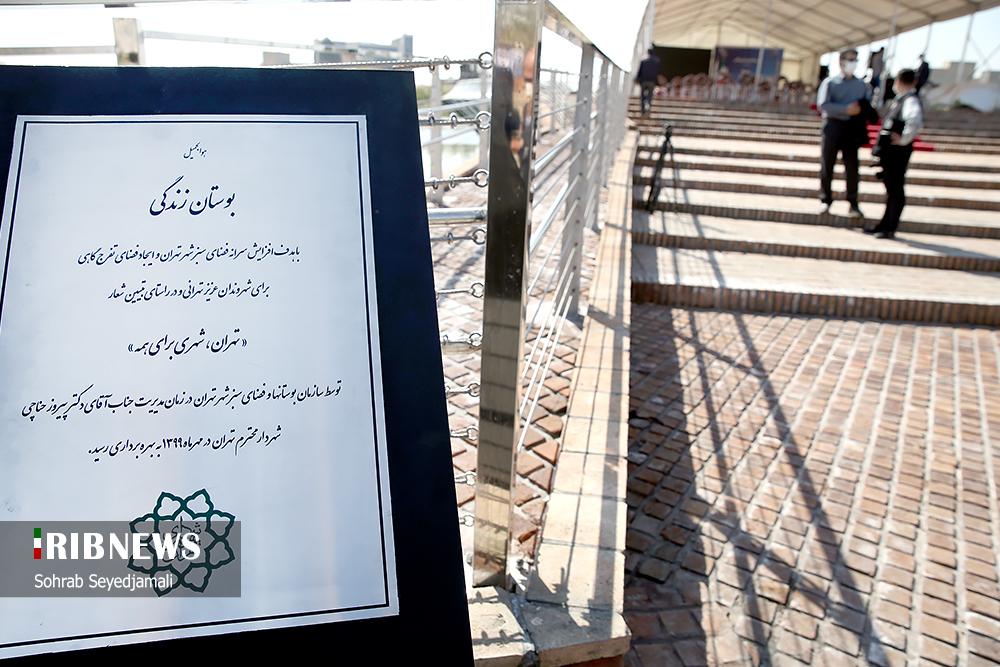 هوالجمیل
بوستان زندگی
با هدف افزایش سرانه فضای سبز شهر تهران و ایجاد فضای تفرج گاهی
برای شهروندان عزیز تهرانی و در راستای تبیین شعار
« تهران، شهری برای همه »
توسط سازمان بوستانها و فضای سبز شهر تهران در زمان مدیریت جناب آقای دکتر پیروز حناچی
شهردار محترم تهران در مهر ماه ۱۳۹۹ به بهره برداری رسید.
IRIBNEWS
Sohrab Seyedjamali